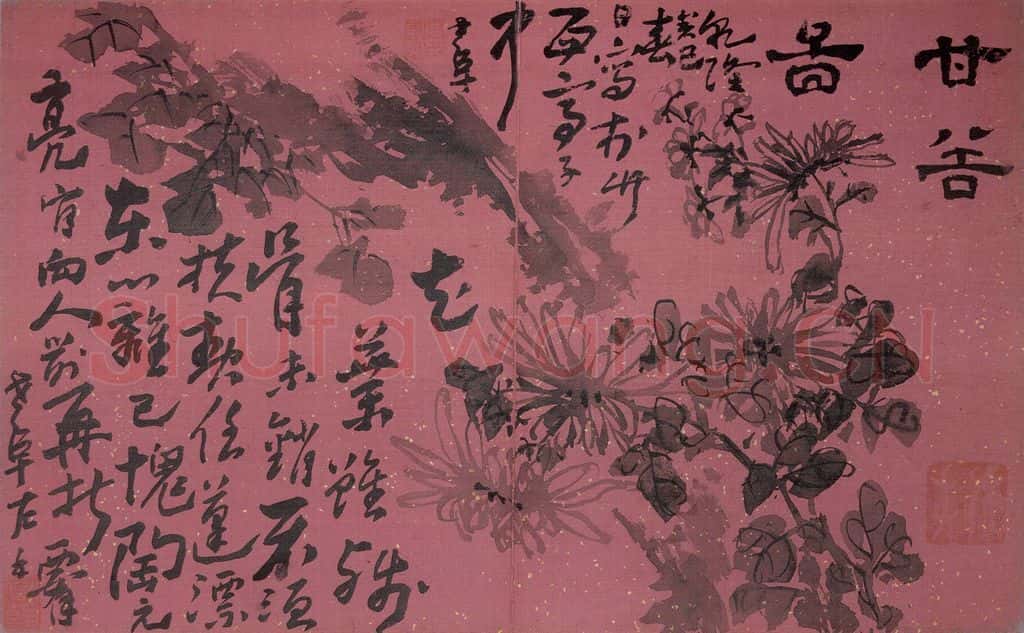 甘谷
啚
乾隆
春
日寫於竹
西亭子
中
老阜
花
葉雖殘
骨未銷不須
扶軟任蓬漂
東籬已愧陶元
亮肯向人前再折腰
老阜左手
Shufawang.CN